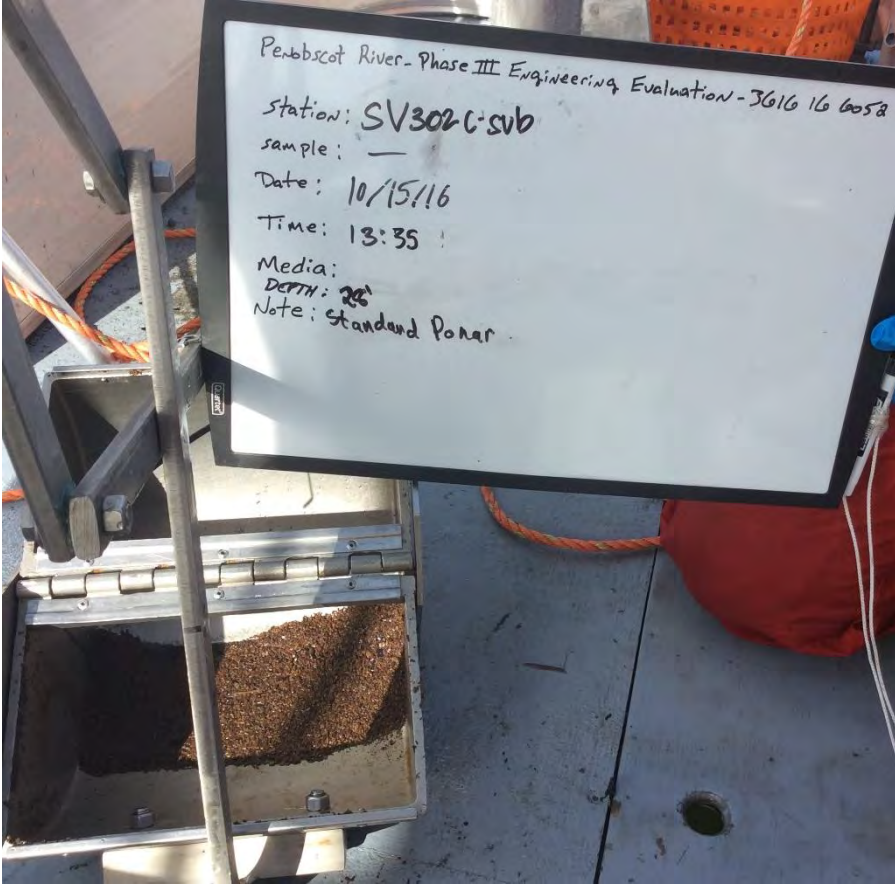 Penobscot River - Phase III Engineering Evaluation - 3616 16 6052
Station: SV302C-sub
sample: —
Date: 10/15/16
Time: 13:35
Media:
DEPTH: 28'
Note: Standard Ponar
Quartet